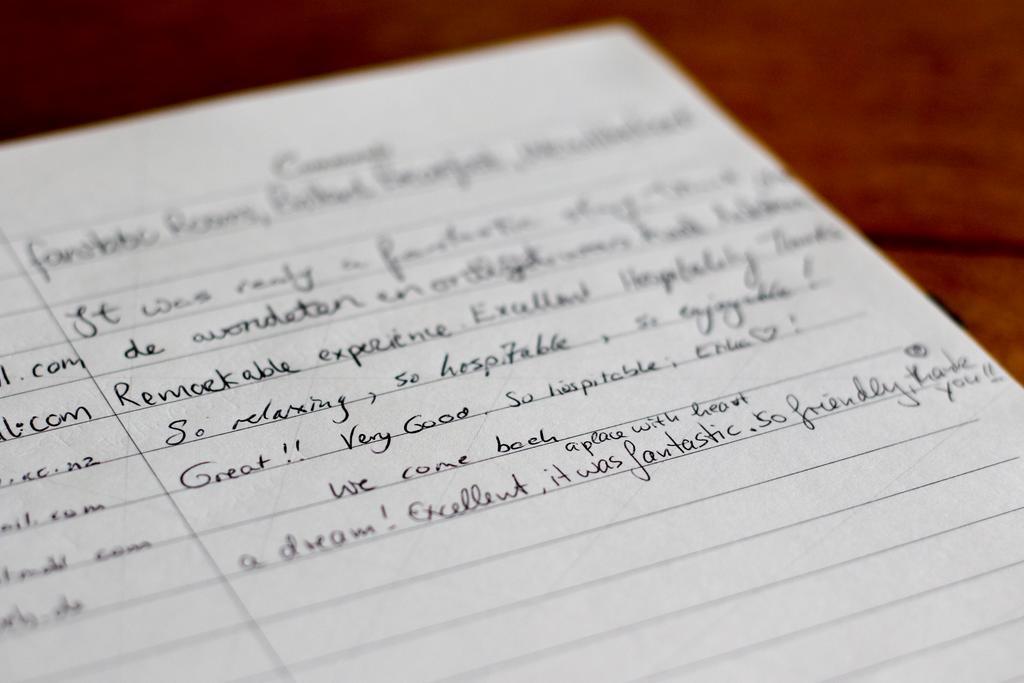 Comment
fantastic Rooms,
It was really a fantastic stay
de avondeten en ontbijt
l.com Remarkable experience. Excellent Hospitality Thanks
il.com So relaxing, so hospitable, so enjoyable!
.cc.nz Great!! Very Good. So hospitable; ♡!
ail.com We come back a place with heart
tmail com a dream! Excellent, it was fantastic. So friendly, thank you!!
.de